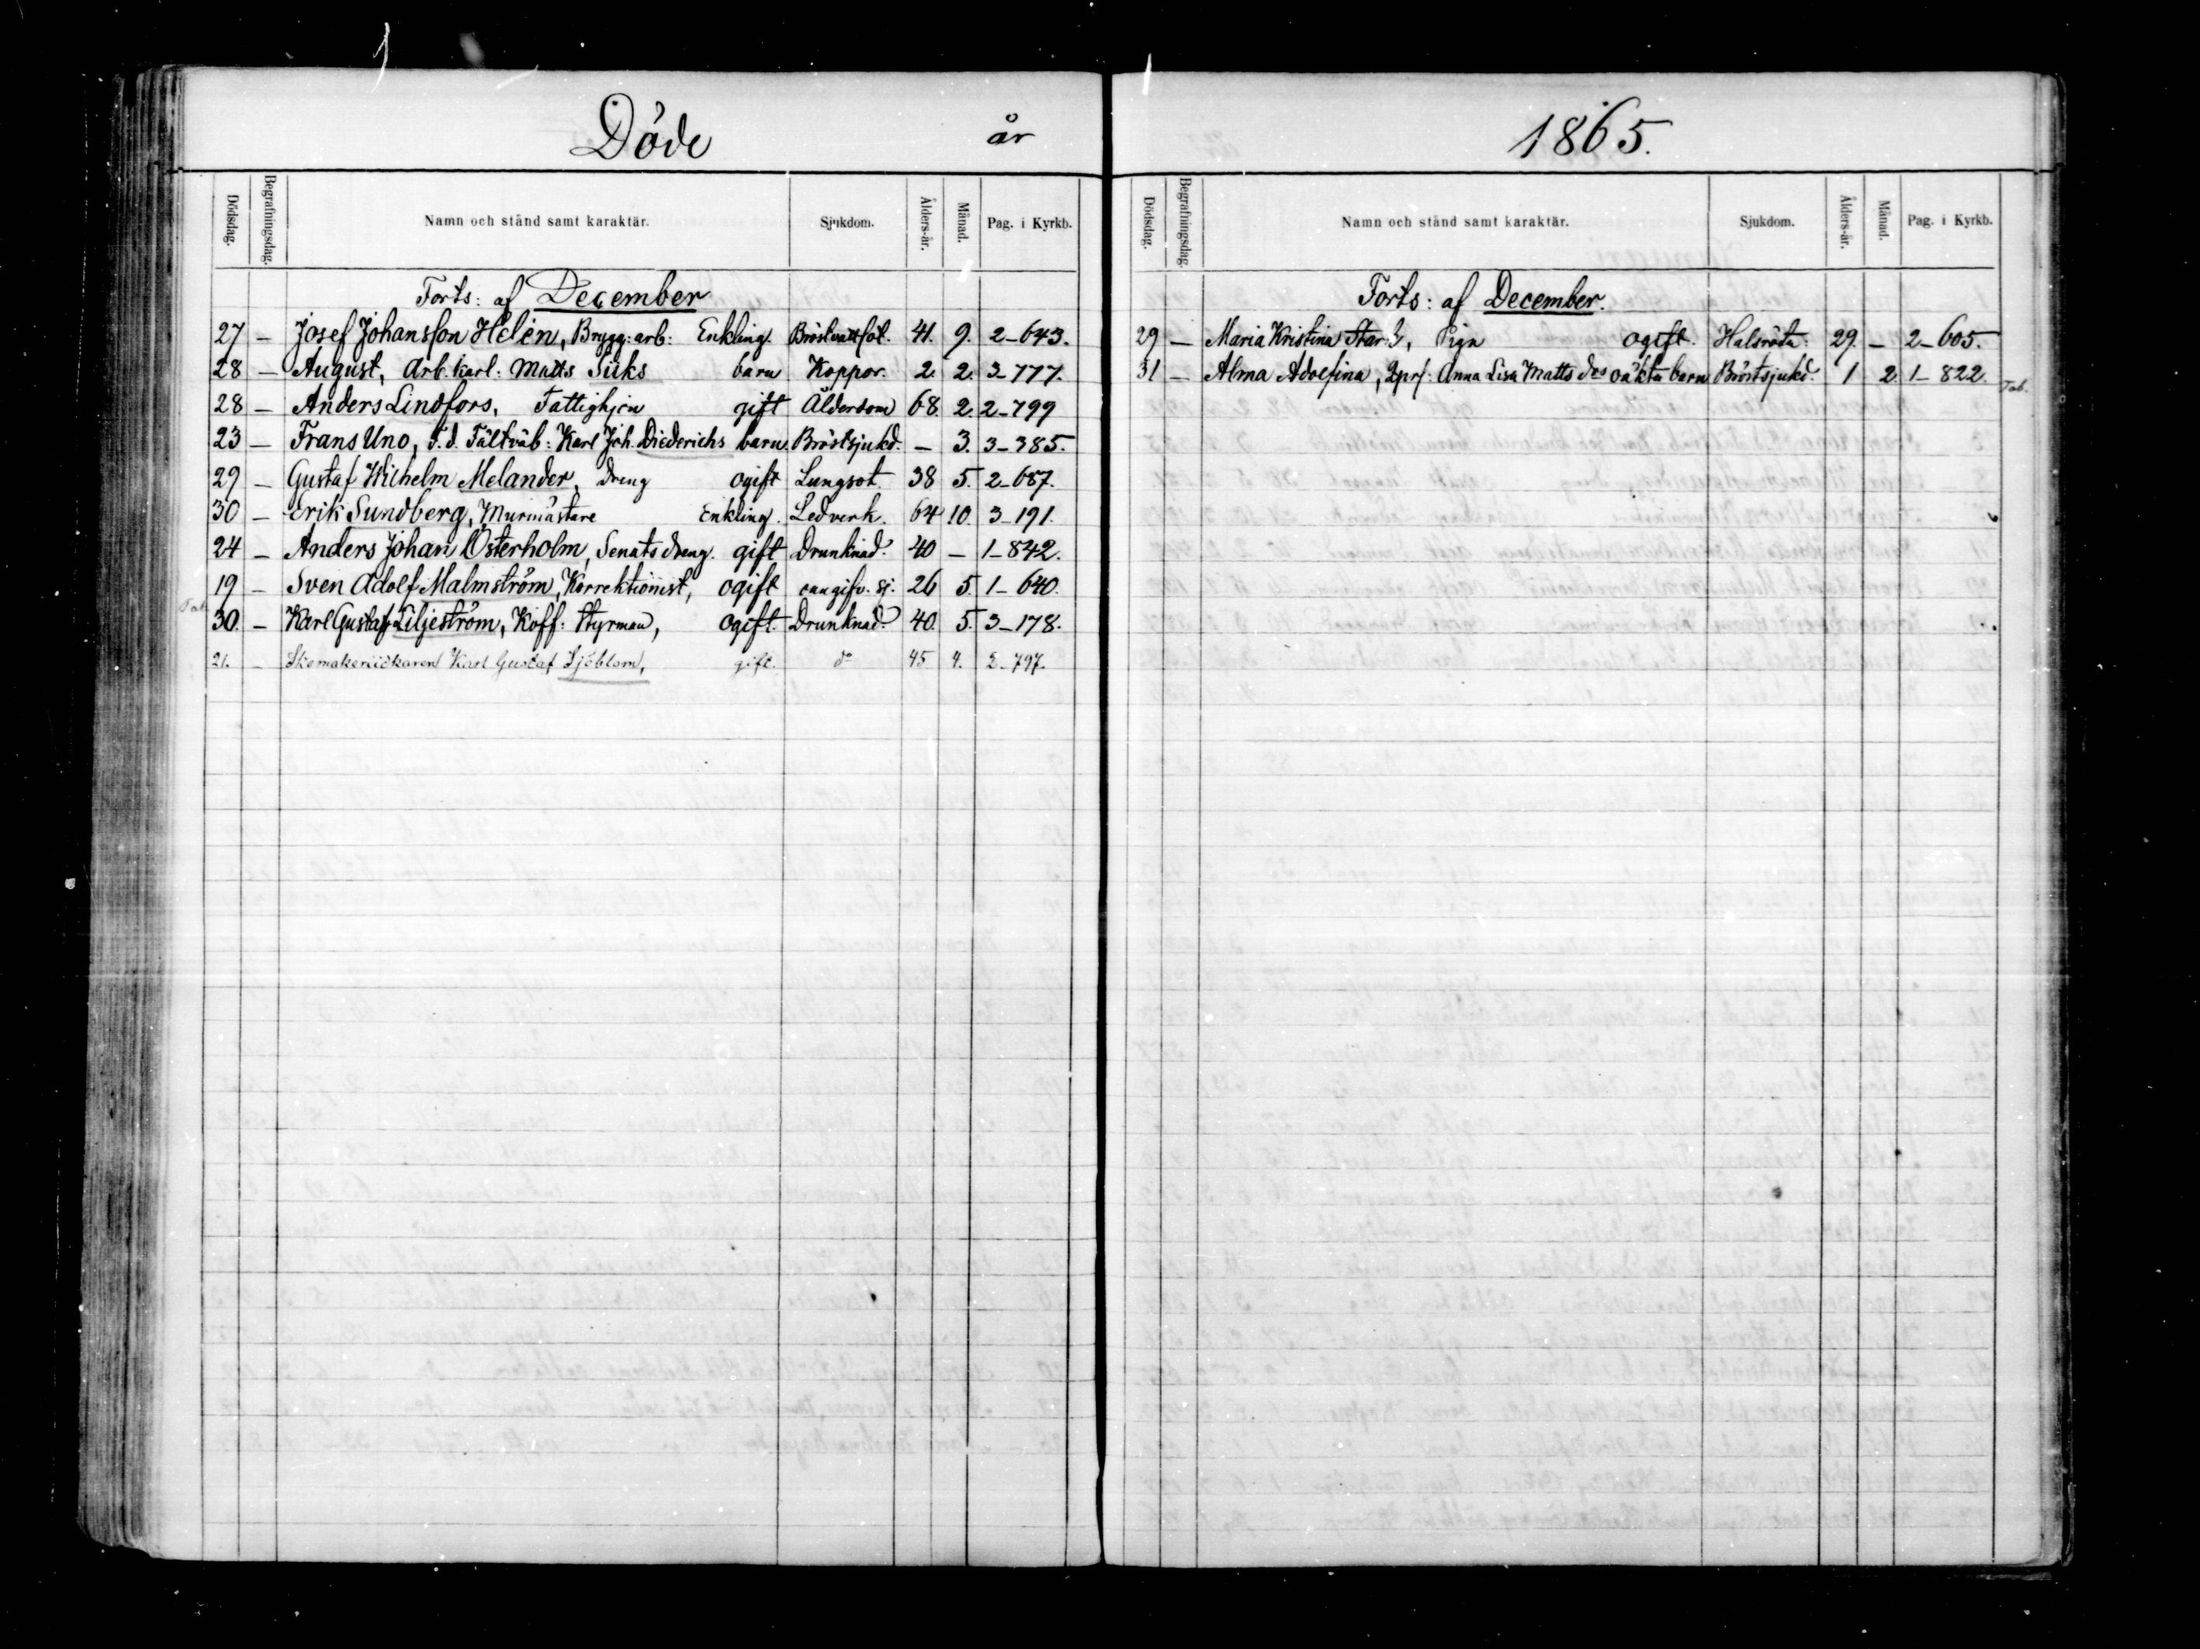 Döde år
Dödsdag. Begrafningsdag. Namn och stånd samt karaktär. Sjukdom. Ålders-år. Månad. Pag. i Kyrkb.
Forts: af December
27 — Josef Johansson Helén, Brygg: arb: Enkling. 41. 9. 2-643.
28 — August, Arb. karl: Matts Siiks barn Koppor. 2. 2. 3-777.
28 — Anders Lindfors, Fattighjon gift Ålderdom 68. 2. 2-799
23 — Frans Uno, F.d. Fältväb: Karl Joh. Diederichs barn. Bröstsjukd. — 3. 3-385.
29 — Gustaf Wilhelm Melander, dreng ogift Lungsot. 38 5. 2-687.
30 — Erik Sundberg, Murmästare Enkling. Ledverk. 64 10. 3-191.
24 — Anders Johan Österholm, Senats dreng. gift Drunknad. 40 — 1-842.
19 — Sven Adolf Malmström, Korrektionist, ogift oangifv. sj. 26 5. 1-640.
30. — Karl Gustaf Liljeström, Koff: Styrman, Ogift. Drunknad. 40. 5. 3-178.
21. — Karl Gustaf Sjöblom, gift. do 45 4. 2-797.
1865.
Dödsdag. Begrafningsdag. Namn och stånd samt karaktär. Sjukdom. Ålders-år. Månad. Pag. i Kyrkb.
Forts: af December.
29 — Maria Kristina Starck, Piga ogift. Halsröta. 29. — 2-605.
31 — Alma Adolfina, Anna Lisa Matts dos oäkta barn Bröstsjukd. 1 2 1-822. Tab.